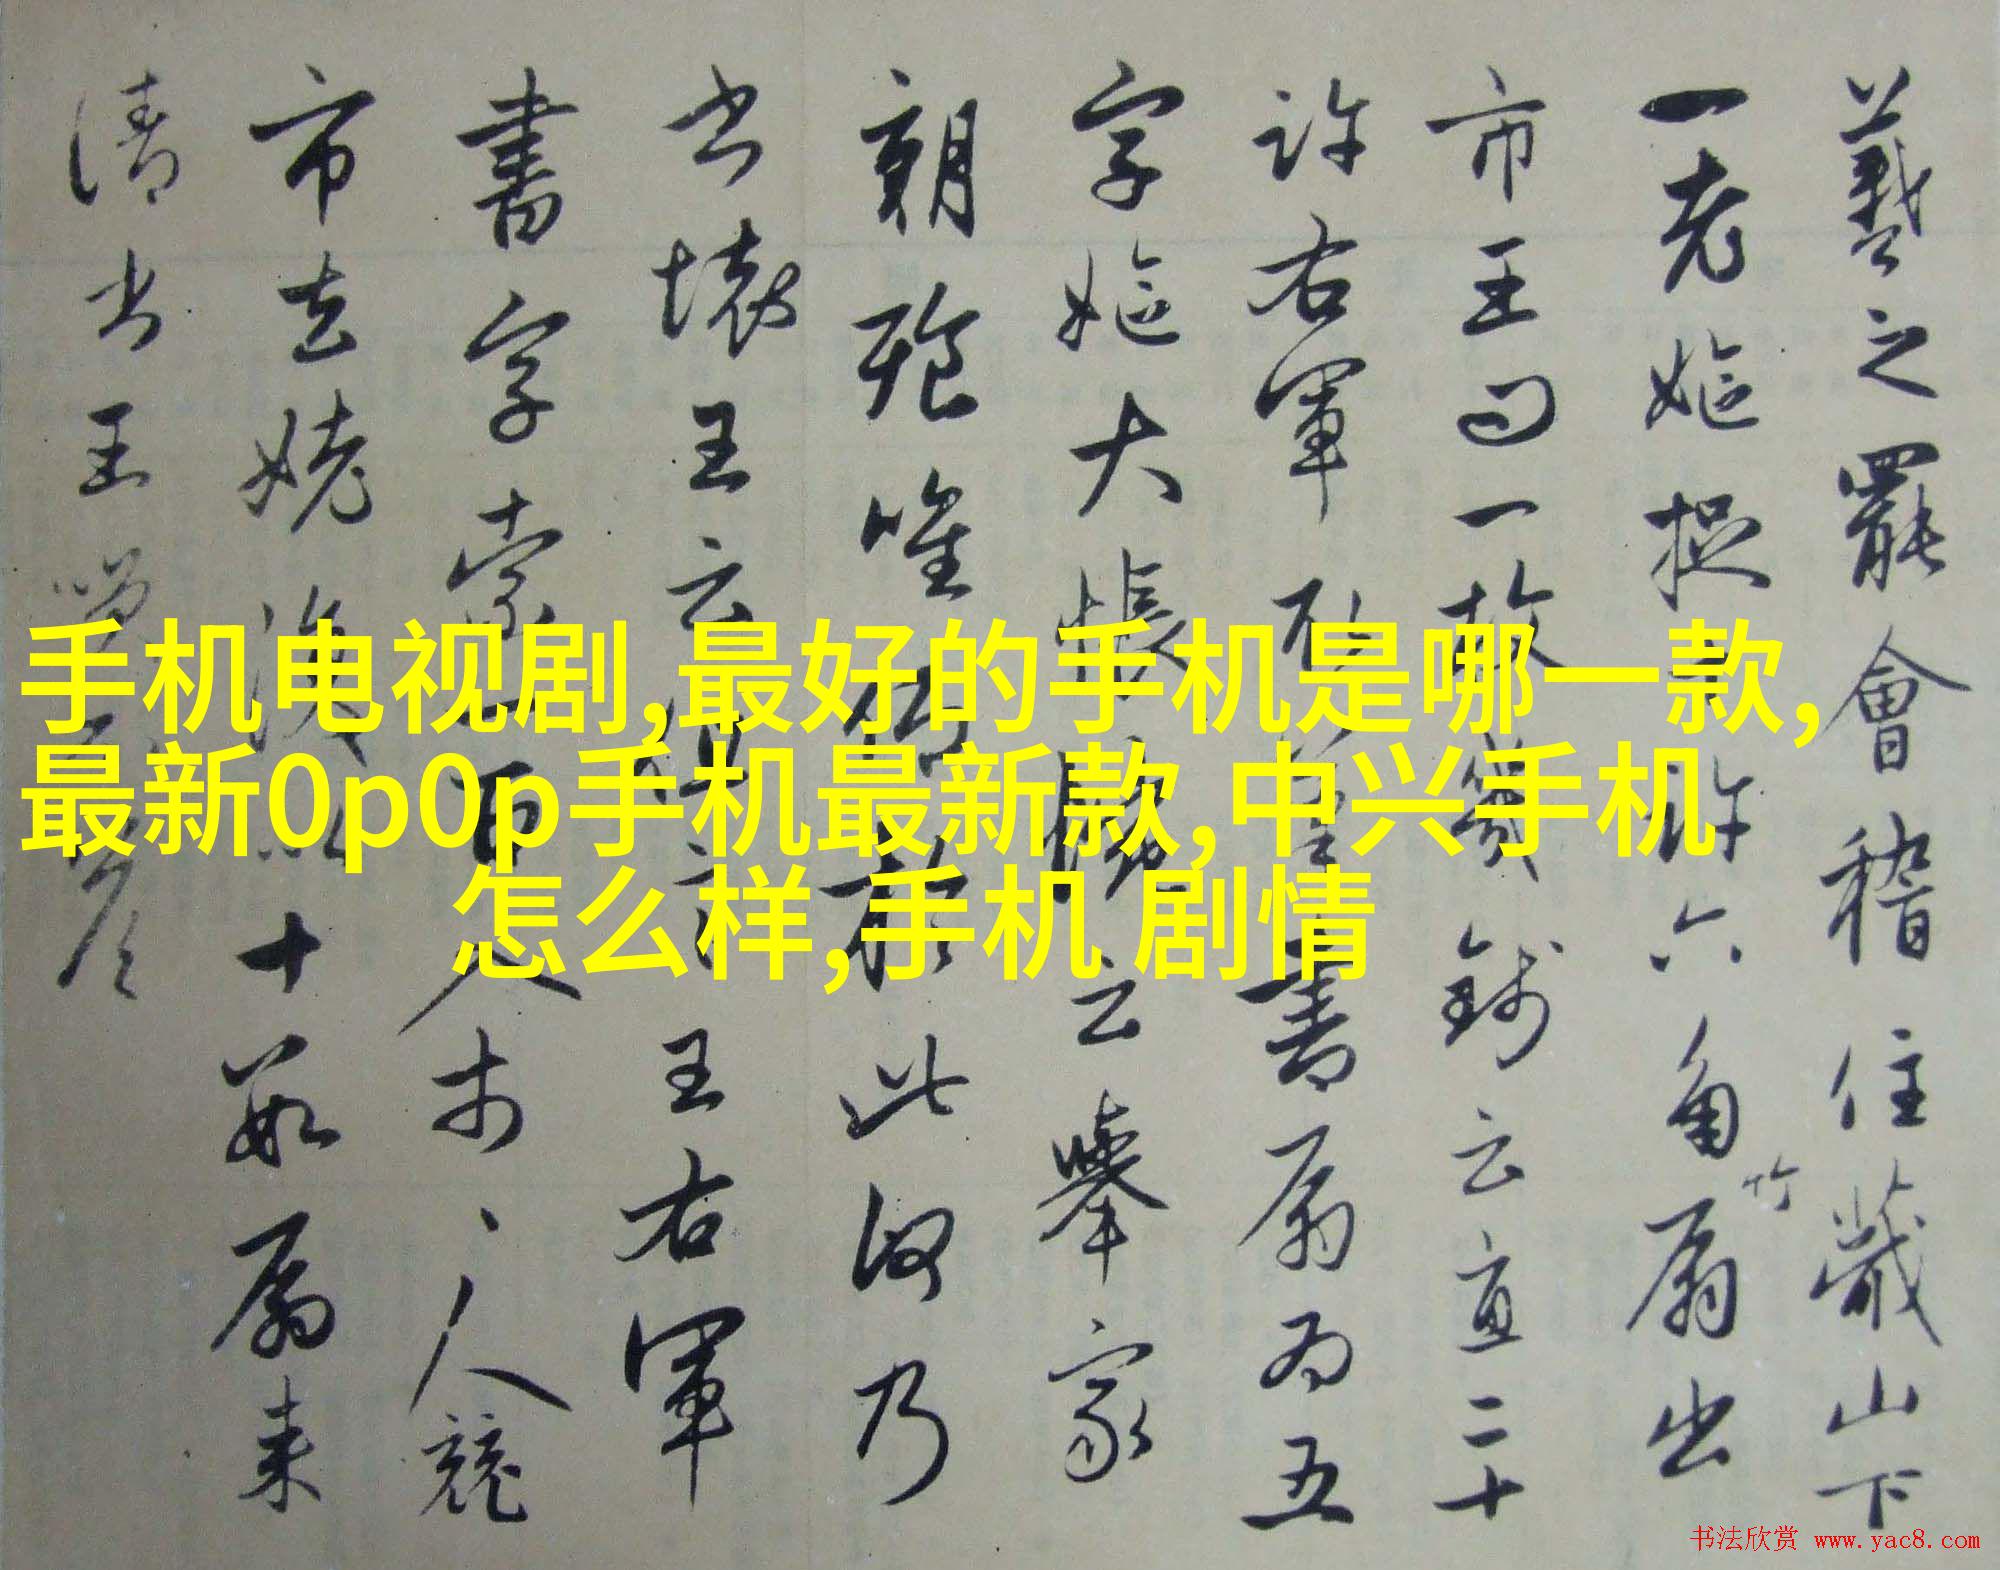 羲之罷會稽住蕺山下
一老嫗捉十許六角竹扇出
市王曰一枚幾錢云直二十
許右軍取筆書扇扇為五
字嫗大悵惋云舉家
朝飡唯仰於此何乃
書壞王云但言王右軍
書字索一百入市人競
市去姥復以十數扇來
請書王笑不答
手机电视剧,最好的手机是哪一款,
最新0p0p手机最新款,中兴手机
怎么样,手机 剧情
书法欣赏 www.yac8.com